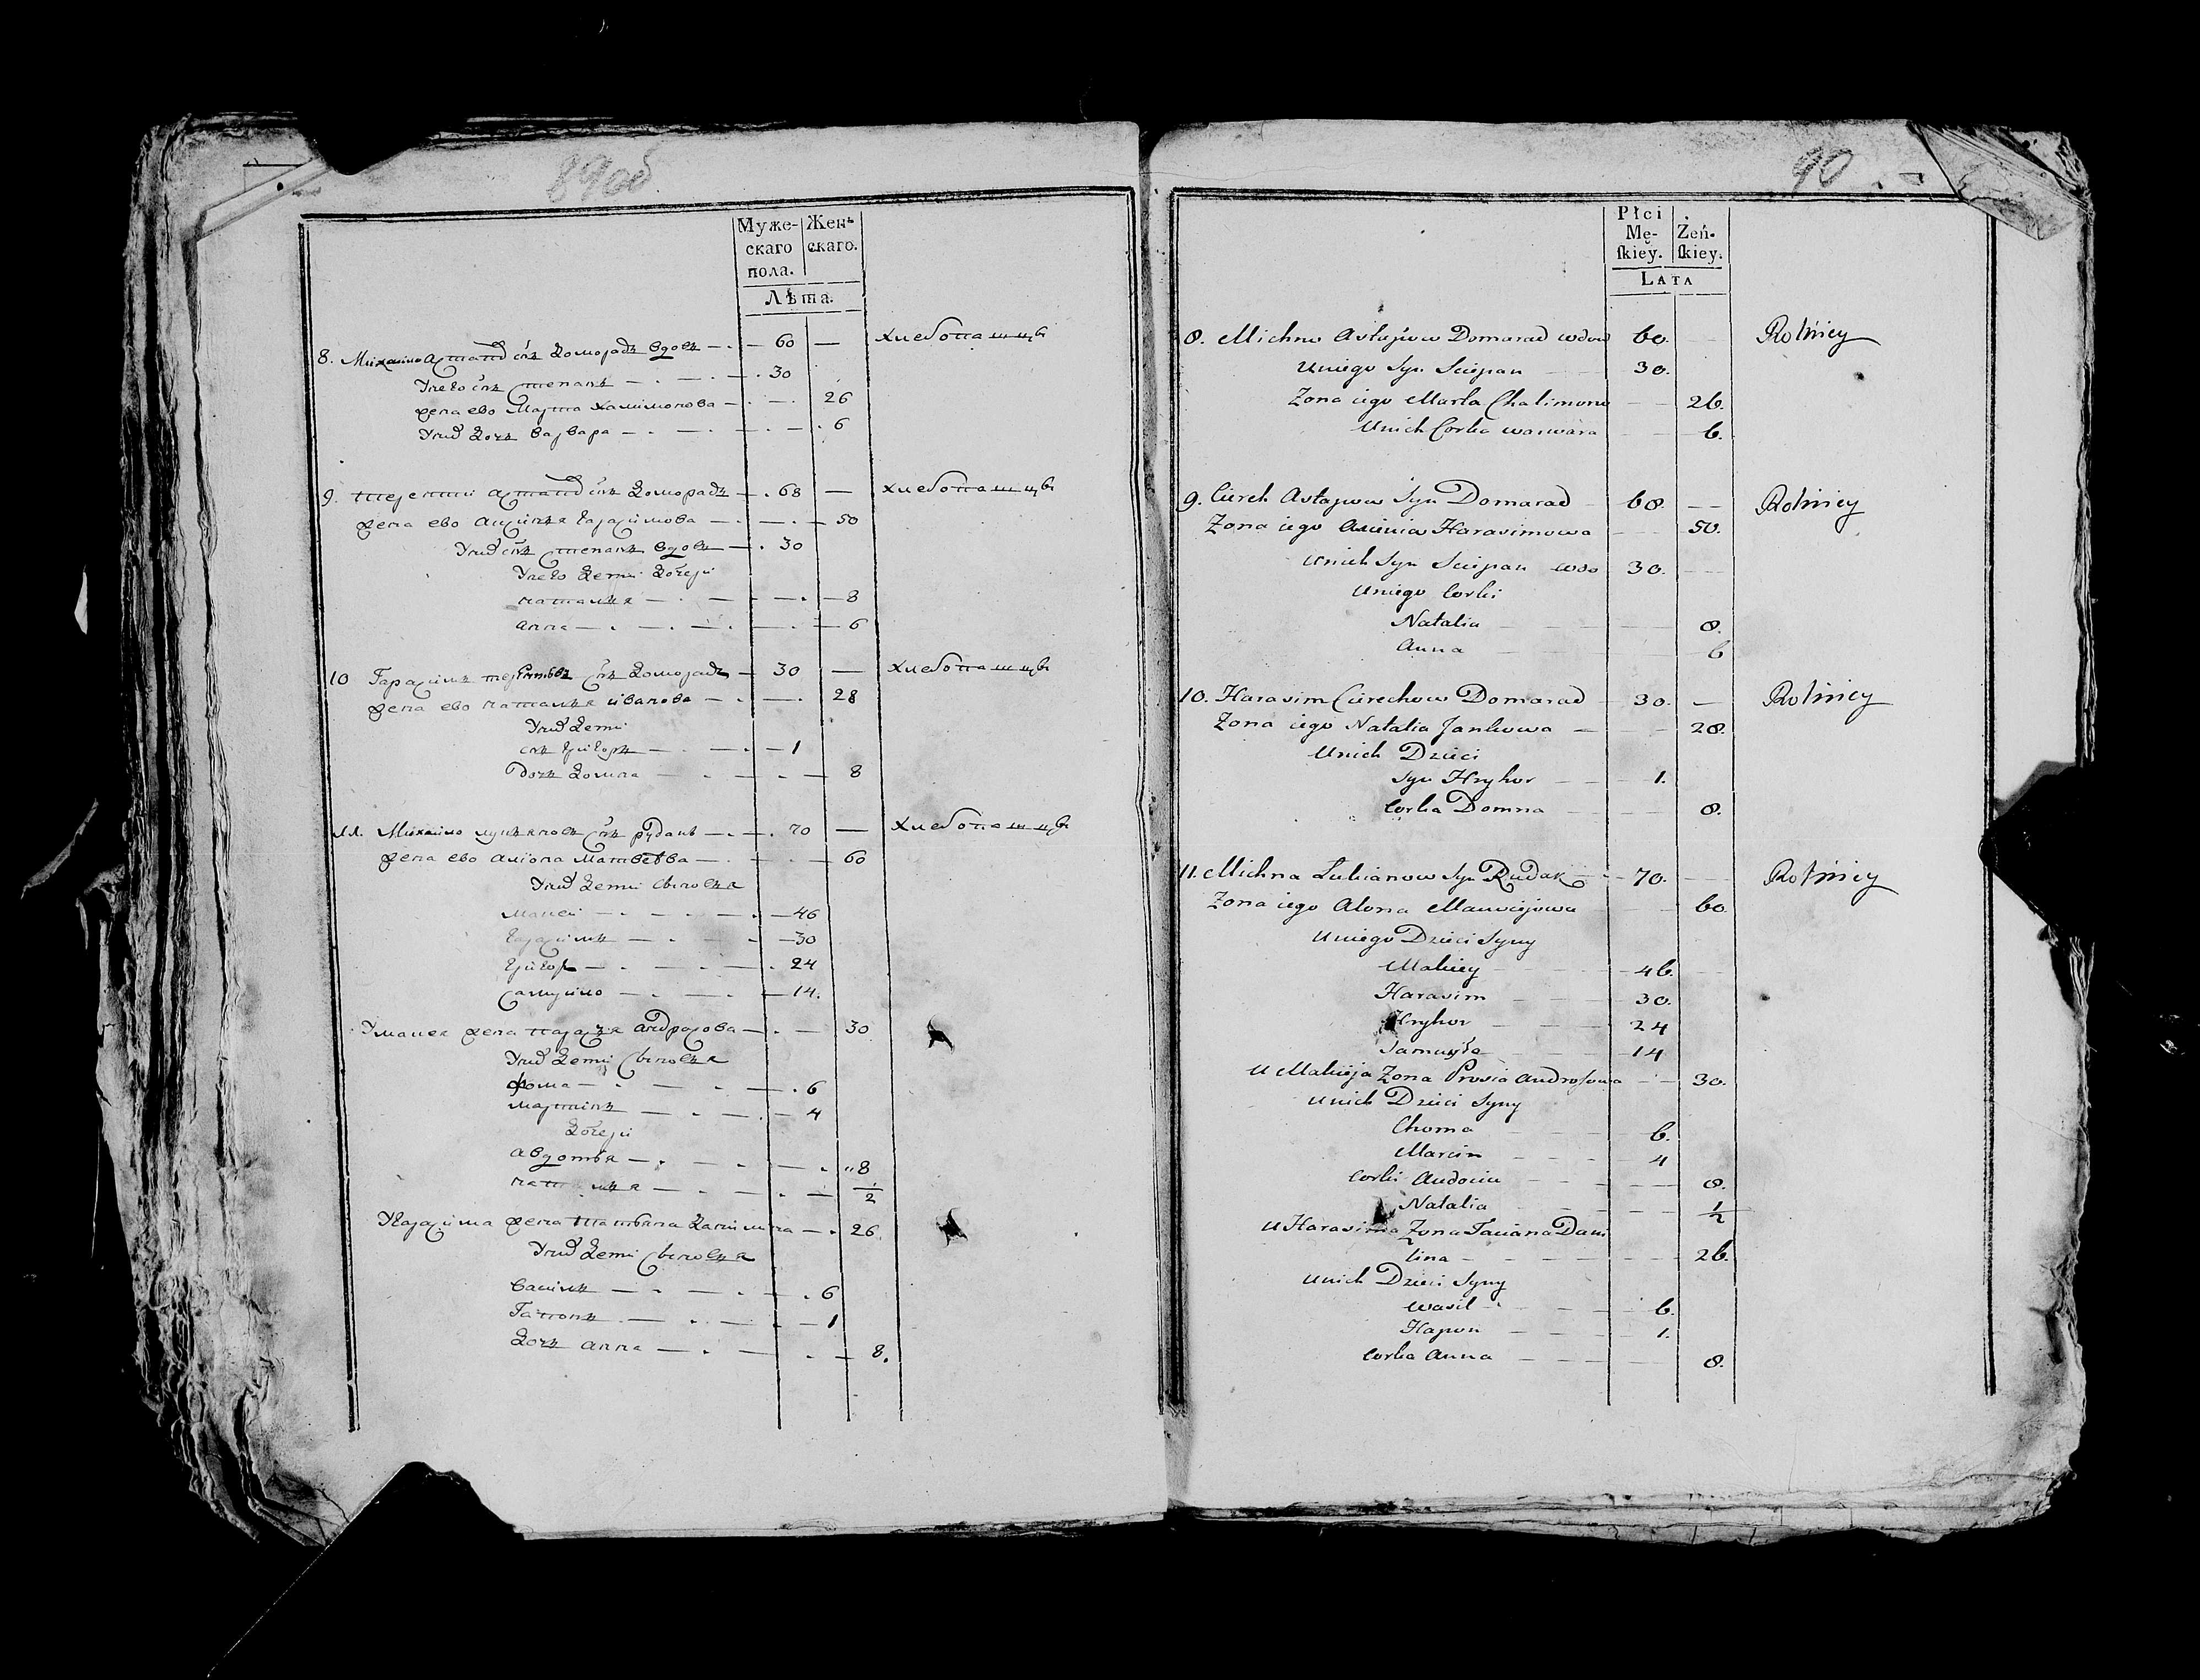 89об
Муже-
скаго
пола.
Жен-
скаго.
Лѣта.
8. Михайло Астапов снъ Доморадъ вдовъ 60 — хлебопашцы
Унего снъ Степанъ 30
жена ево Марта Халимонова 26
Уних дочь Варвара 6
9. Терентий Астапов снъ Доморадъ 68 — хлебопашцы
жена ево Гарасимова 50
Уних снъ Степанъ вдовъ 30
Унего дети дочери
Наталья 8
Анна 6
10 Гарасимъ снъ Доморадъ 30 — хлебопашцы
жена ево Наталья Иванова 28
Уних дети
снъ Григоръ 1
дочь Домна 8
11. Михайло Лукьяновъ снъ Рудакъ 70 — хлебопашцы
жена ево Алиона Матвеева 60
Уних дети сыновья
Макей 46
Гарасимъ 30
Григор 24
Самуйло 14.
Умакея жена Андросова 30
Уних дети сыновья
Фома 6
Мартинъ 4
дочери
Авдотья 8
Наталья 1/2
Угарасима жена Татьяна Данилина 26
Уних дети сыновья
Василь 6
Гапонъ 1
дочь Анна 8.
90
Płci
Mę-
ſkiey.
Żeń-
ſkiey.
LATA
8. Michno Astapow Domarad wdow 60. Rolnicy
Uniego Syn Sciepan 30.
Zona iego Marta Chalimono 26.
Unich Corka Warwara 6.
9. Cierech Astapow Syn Domarad 68. Rolnicy
Zona iego Axinia Harasimowa 50.
Unich Syn Sciepan wdo 30.
Uniego Corki
Natalia 8.
Anna 6
10. Harasim Cierechow Domarad 30. — Rolnicy
Zona iego Natalia Jankowa 28.
Unich Dzieci
Syn Hryhor 1.
Corka Domna 8.
11. Michna Lukianow Syn Rudak 70. Rolnicy
Zona iego Alona Mawciejowa 60.
Uniego Dzieci Syny
Makiey 46.
Harasim 30.
Hryhor 24
Samuyła 14
U Makieja Zona Prosia Androsowa 30.
Unich Dzieci Syny
Choma 6.
Marcin 4
Corki Audocia 8.
Natalia 1/2
U Harasima Zona Taciana Dani
lina 26.
Unich Dzieci Syny
Wasil 6.
Hapon 1.
Corka Anna 8.